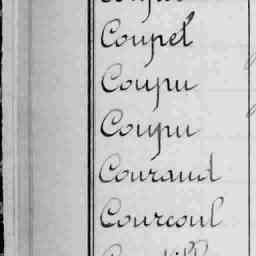 Coupet
Coupu
Coupu
Couraud
Courcoul